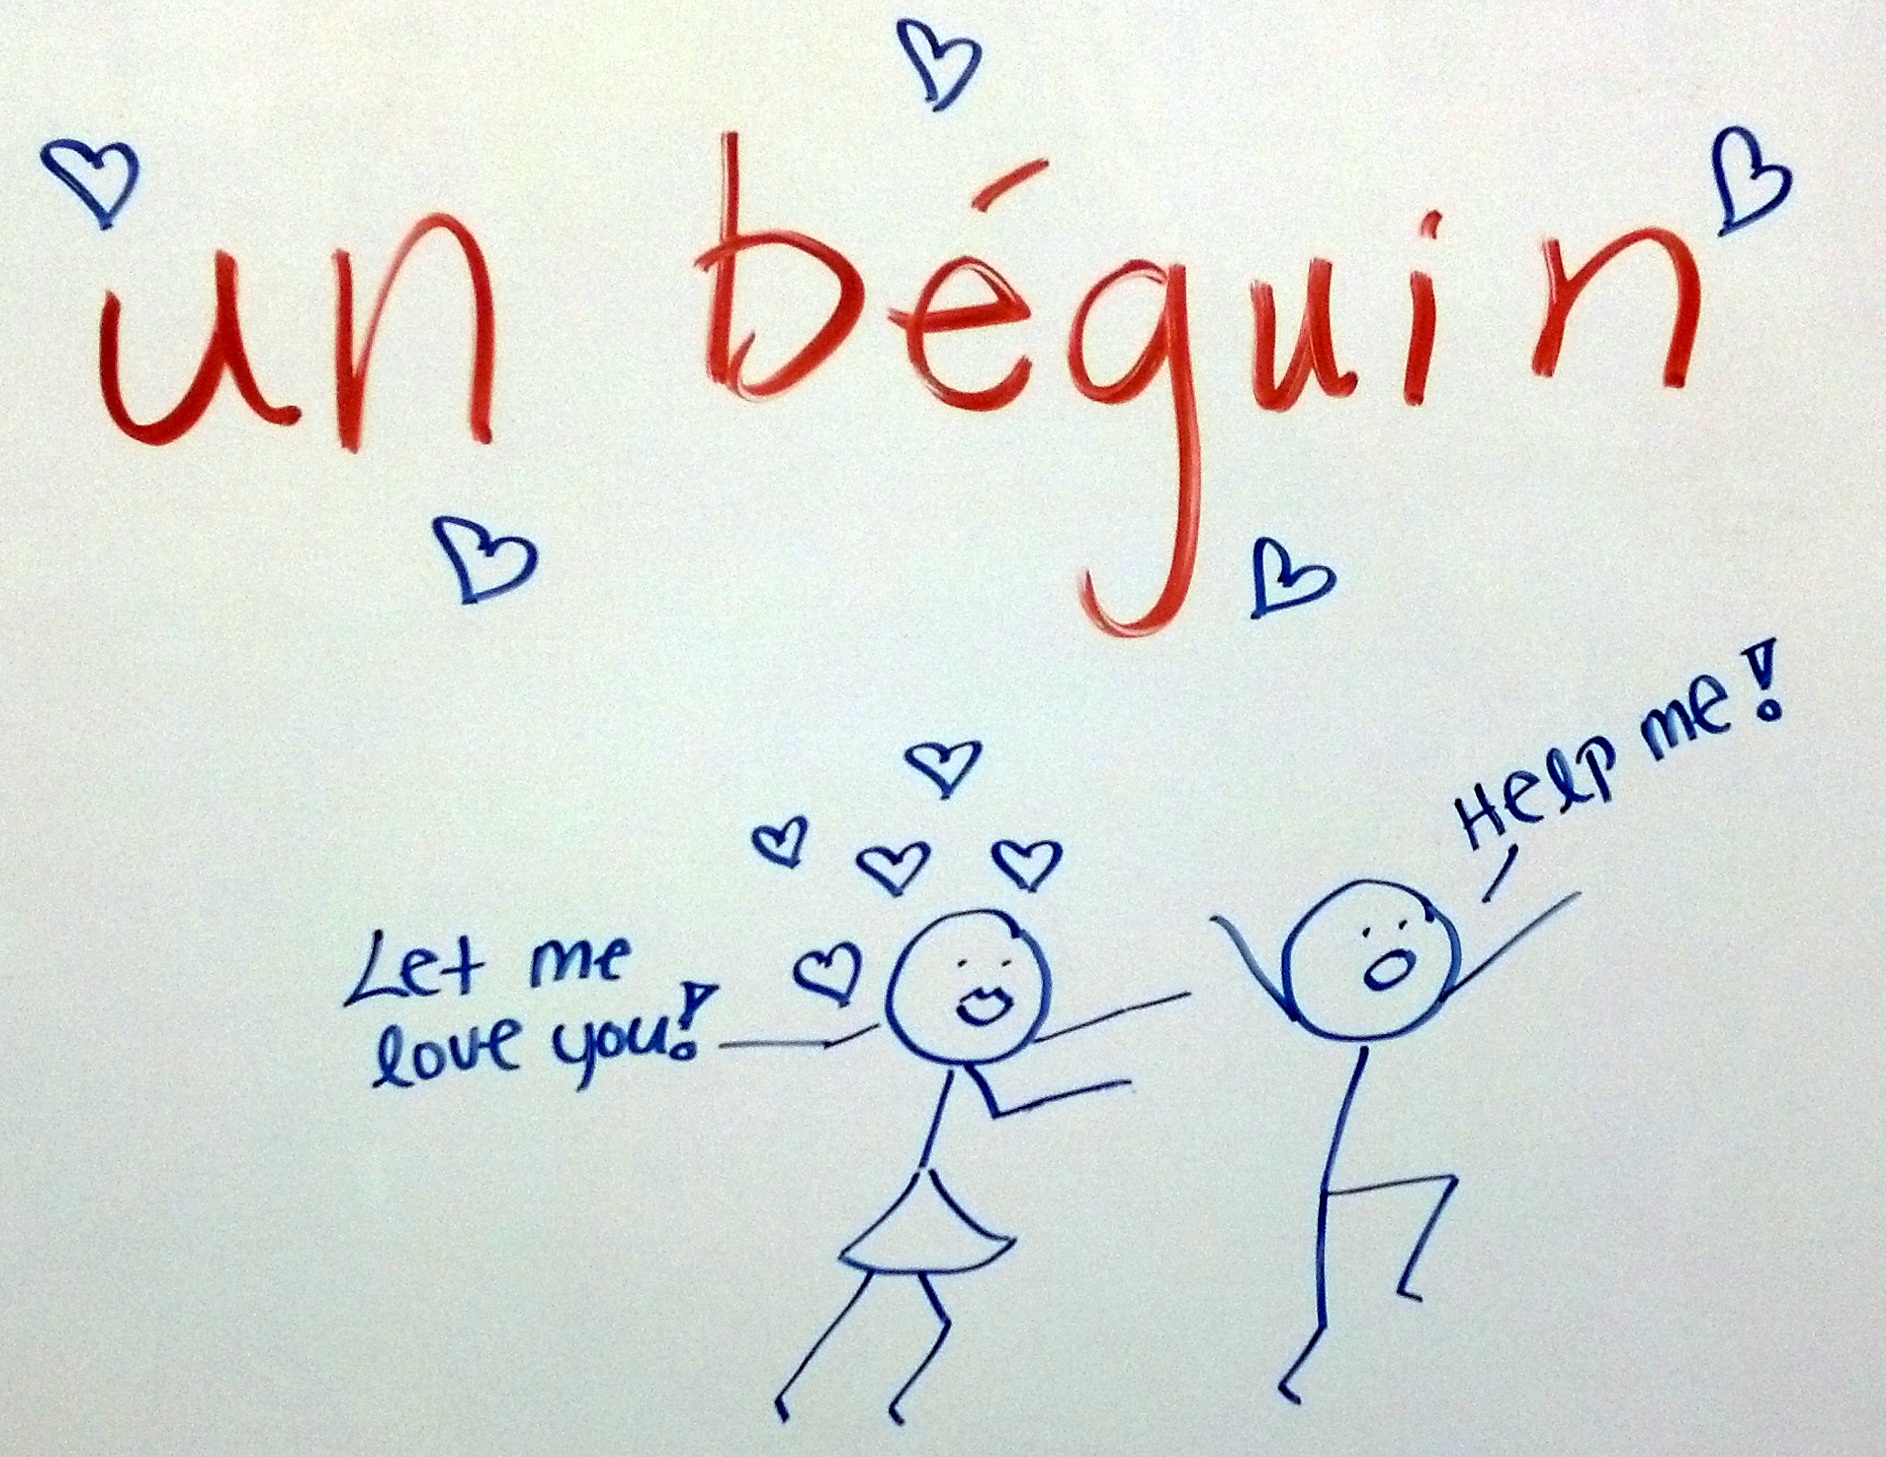 un béguin
Help me!
Let me
love you!